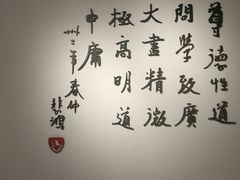 尊德性道
問學致廣
大盡精微
極高明道
中庸
廿二年春仲
悲鴻